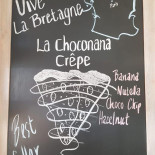 Vive
La Bretagne
La Choconana
Crêpe
Banana
Nutella
Choco Chip
Hazelnut
Best
Seller